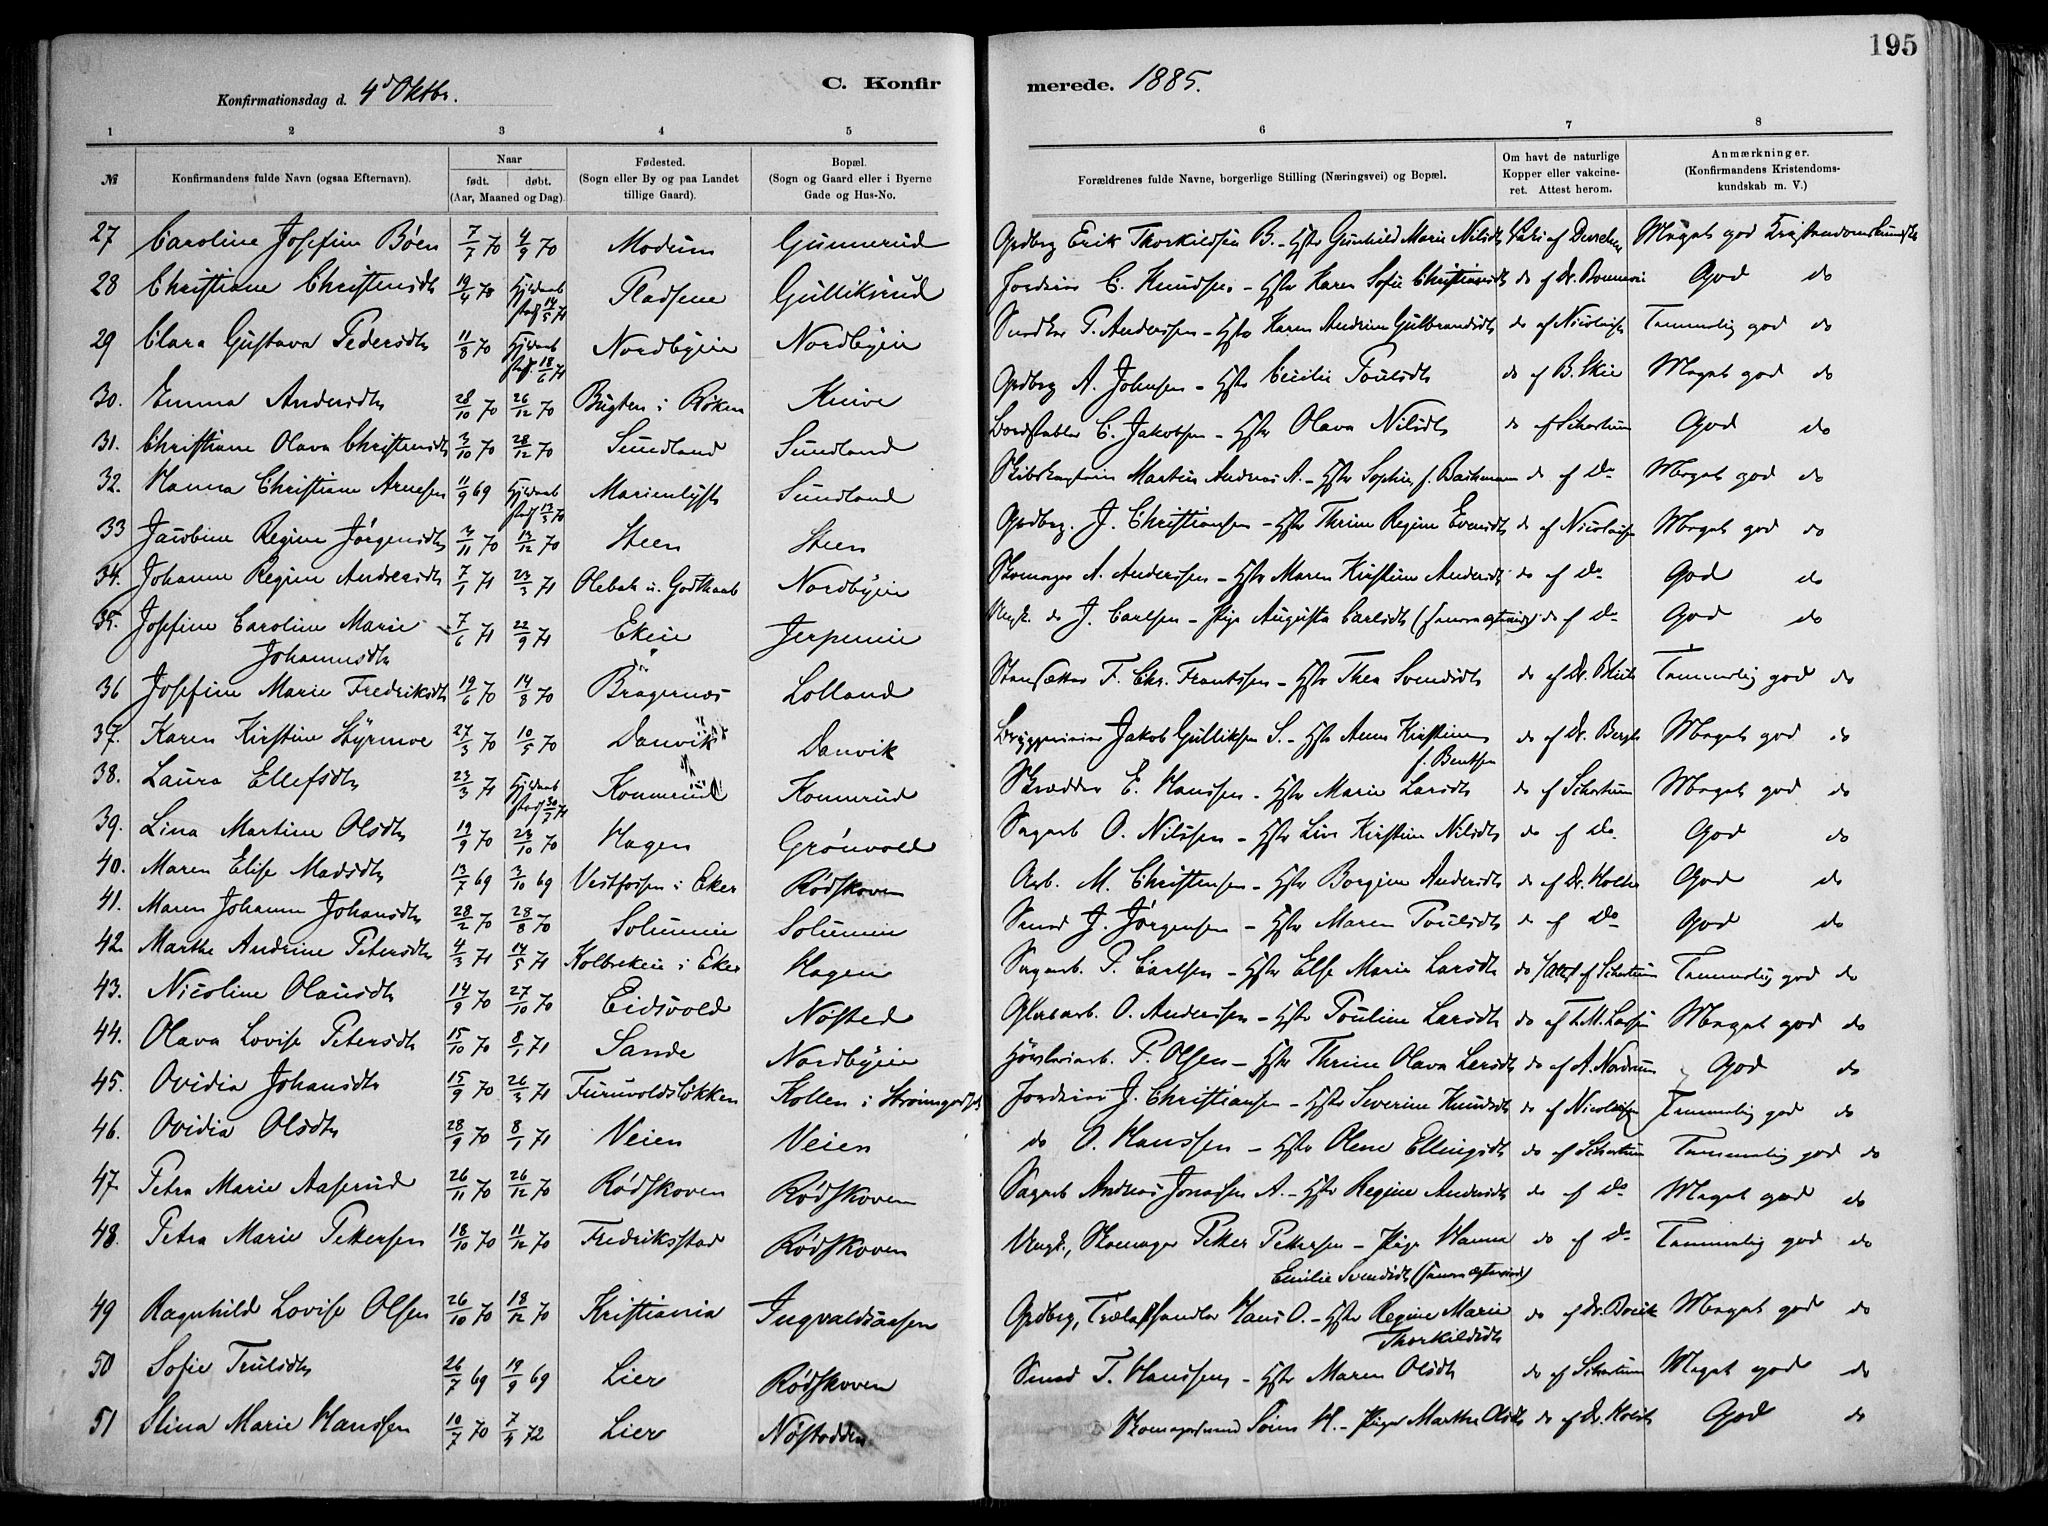 195
Konfirmationsdag d. 4d Oktbr.
C. Konfir
merede. 1885.
1 2 3 4 5 6 7 8
№
Konfirmandens fulde Navn (ogsaa Efternavn).
Naar
født. døbt.
(Aar, Maaned og Dag).
Fødested.
(Sogn eller By og paa Landet
tillige Gaard).
Bopæl.
(Sogn og Gaard eller i Byerne
Gade og Hus-No.
Forældrenes fulde Navne, borgerlige Stilling (Næringsvei) og Bopæl.
Om havt de naturlige
Kopper eller vakcine-
ret. Attest herom.
Anmærkninger.
(Konfirmandens Kristendoms-
kundskab m. V.)
27 Caroline Josefine Böen 7/7 70 4/9 70 Modum Gunnerud Erik Thorkildsen B. - Hstr Gunhild Marie Nilsdt Meget god Kristendomskundsk
28 Christiane Christensdt 19/4 70 14/5 71 Pladsene Gulliksrud C. Knudsen - Hstr Karen Sofie Christiansdt do af Dr. God do
29 Clara Gustava Pedersdt 11/8 70 18/6 71 Nordbyen Nordbyen P. Anderssen - Hstr Karen Andrine Gulbrandsdt do af Nicolaisen Tammelig god do
30. Emma Andersdt 28/10 70 26/12 70 Bugten i Röken Knive A. Johnsen - Hstr Cecilie Poulsdt do af B. Skie Meget god do
31. Christiane Olava Christensdt 3/10 70 28/12 70 Sundland Sundland C. Jakobsen - Hstr Olava Nilsdt do af Schartum God do
32. Hanna Christiane Arnesen 11/9 69 13/3 70 Marienlyst Sundland Skibskaptein Martin Andreas A. - Hstr Sophie f. Bachmann do af do Meget god do
33 Jacobine Regine Jörgensdt 3/11 70 13/12 70 Steen Steen J. Christiansen - Hstr Thrine Regine Evensdt do af Nicolaisen Meget god do
34. Johanne Regine Andersdt 7/1 71 23/3 71 Olebak u. Godthaab Nordbyen Skomager A. Anderssen - Hstr Maren Kirstine Andersdt do af do God do
35. Josefine Caroline Marie 7/6 71 22/9 71 Ekeie Jerpenie Ungk. do J. Carlsen - Pige Augusta Carlsdt do af do God do
Johannesdt
36 Josefine Marie Fredriksdt 19/6 70 14/8 70 Bragernæs Lolland F. Chr. Frantssen - Hstr Thea Svendsdt do af Dr. Tammelig god do
37. Karen Kirstine Styrmoe 27/3 70 10/5 70 Danvik Danvik Jakob Gulliksen S. - Hstr Anne Kirstine do af Dr. Bergh Meget god do
f. Bentsen
38. Laura Ellefsdt 23/3 71 30/7 71 Konnerud Konnerud Skrædder E. Hanssen - Hstr Marie Larsdt do af Schartum Meget god do
39. Lina Martine Olsdt 19/9 70 23/10 70 Hagen Grönvold Sagarb O. Nilssen - Hstr Live Kirstine Nilsdt do af do God do
40. Maren Elise Madsdt 13/7 69 3/10 69 Vestfossen i Eker Rödskoven Arb. M. Christensen - Hstr Borgine Andersdt do af Dr. Holte God do
41. Maren Johanne Johansdt 28/2 70 28/8 70 Solumsie Solumsie Smed J. Jörgensen - Hstr Maren Poulsdt do af do God do
42 Marthe Andrine Petersdt 4/3 71 14/5 71 Kolbrekeie i Eker Hagen Sagarb. P. Carlsen - Hstr Else Marie Larsdt do af Schartum Tammelig god do
43. Nicoline Olausdt 14/9 70 27/10 70 Eidsvold Nösted Glasarb. O. Anderssen - Hstr Pouline Larsdt do af T. M. Larsen Meget god do
44. Olava Lovise Petersdt 15/10 70 8/1 71 Sande Nordbyen P. Olsen - Hstr Thrine Olava Larsdt do af A. Nordrum God do
45. Ovidia Johansdt 15/9 70 26/3 71 Furuvoldslökken Kollen i J. Christiansen - Hstr Severine Knudsdt do af Nicolaisen Tammelig god do
46. Ovidia Olsdt 28/9 70 8/1 71 Veien Veien do O. Hanssen - Hstr Olene Ellingsdt do af Schartum Tammelig god do
47 Petra Marie Aaserud 26/11 70 26/12 70 Rödskoven Rödskoven Sagarb Andreas Jonassen A. - Hstr Regine Andersdt do af do Meget god do
48. Petra Marie Pettersen 18/10 70 11/12 70 Fredriksstad Rödskoven Ungk., Skomager Petter Pettersen - Pige Hanna do af do Tammelig god do
Emilie Svendsdt
49 Ragnhild Lovise Olsen 26/10 70 18/12 70 Kristiania Ingvaldsaasen Grdbrg, Trælasthandler Hans O. - Hstr Regine Marie do af Dr. Meget god do
Thorkildsdt
50 Sofie Trulsdt 26/7 69 19/9 69 Lier Rödskoven Smed T. Hanssen - Hstr Maren Olsdt do af Schartum Meget god do
51 Stina Marie Hanssen 10/7 70 7/4 72 Lier Nöstodden Skomagersvend Sören H. - Pige Marthe Olsdt do af Dr. Holst God do